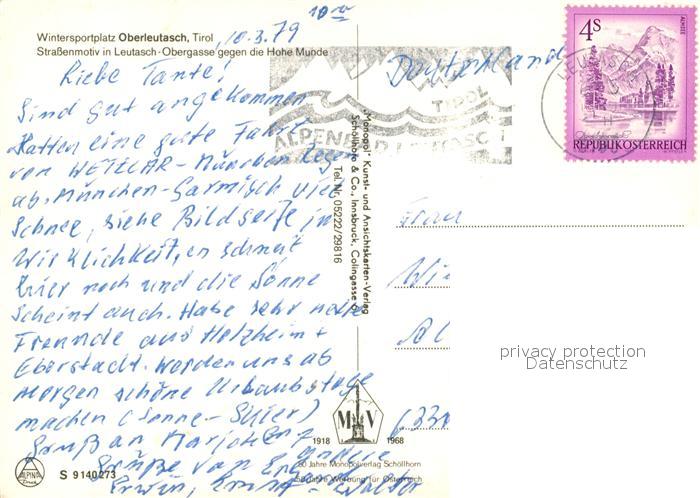 Wintersportplatz Oberleutasch, Tirol
Straßenmotiv in Leutasch-Obergasse gegen die Hohe Munde
10.3.79
Liebe Tante!
Sind gut angekommen
Hatten eine gute Fahrt
von WETZLAR-München Regen
ab München-Garmisch viel
Schnee, siehe Bildseite in
Wirklichkeit, es schneit
hier noch und die Sonne
scheint auch. Habe sehr nette
Freunde aus Holzheim +
Eberstadt. Werden uns ab
morgen schöne Urlaubstage
machen (Sonne-Skier)
Gruß an
Grüße von
Erwin,
ALPINA
Druck
S 9140273
"Monopol" Kunst- und Ansichtskarten-Verlag
Schöllhorn & Co., Innsbruck, Colingasse
Tel. Nr. 05222/29816
MV
1918 1968
50 Jahre Monopolverlag Schöllhorn
50 Jahre Werbung für Österreich
Deutschland
TIROL
4S
ALMSEE
REPUBLIK ÖSTERREICH
Frau
privacy protection
Datenschutz